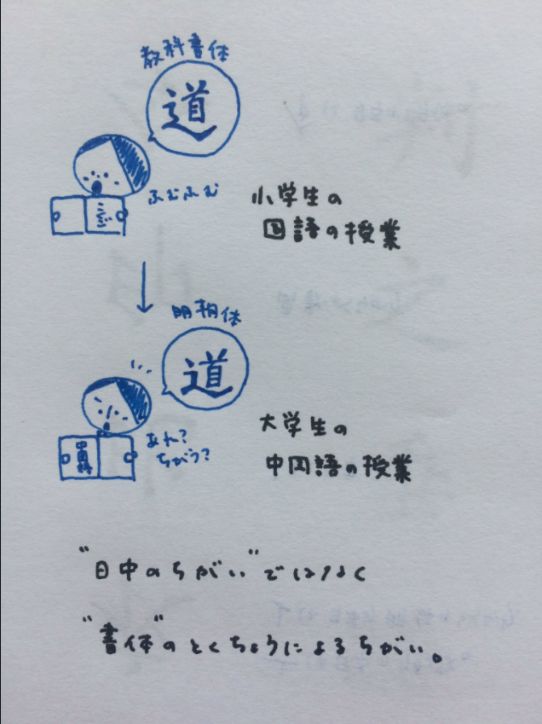 教科書体
道
ふむふむ
小学生の
国語の授業
明朝体
道
あれ?
ちがう?
大学生の
中国語の授業
"日中のちがい"ではなく
"書体"のとくちょうによるちがい。